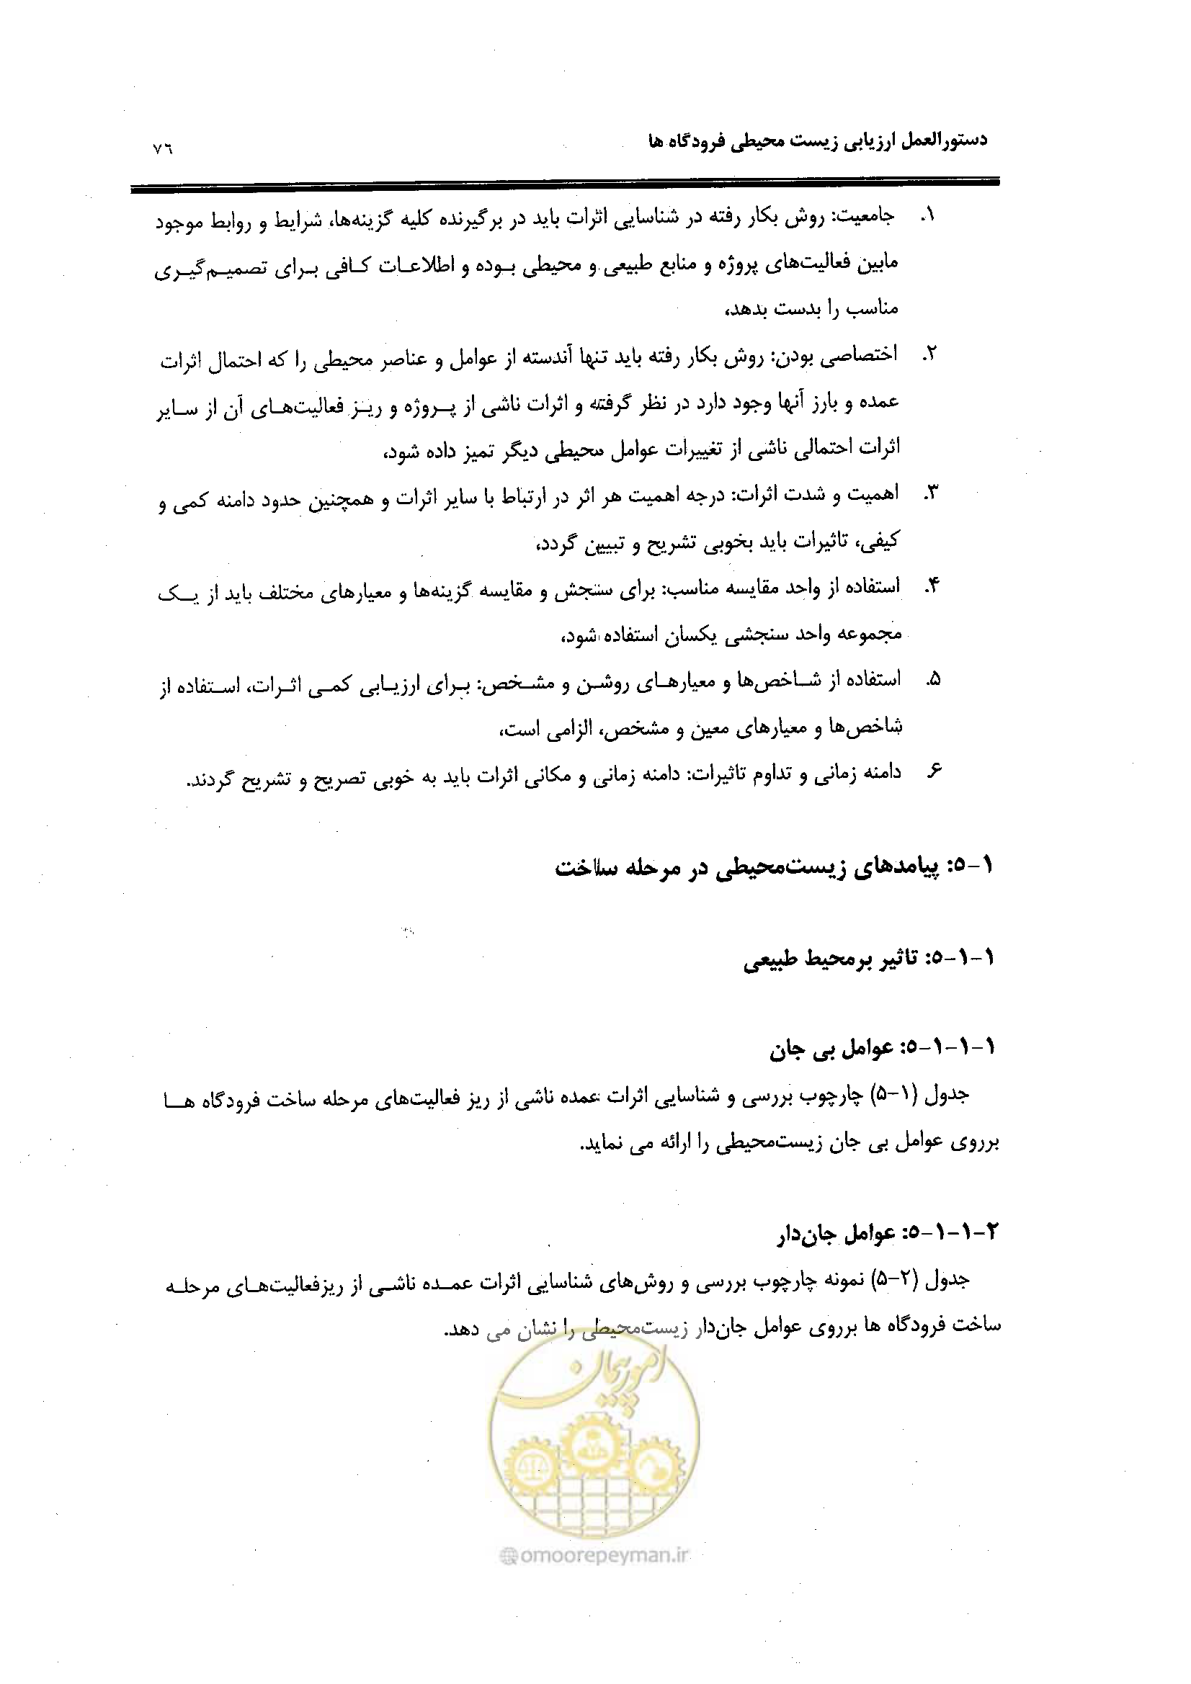 دستورالعمل ارزیابی زیست محیطی فرودگاه ها
۷۶
۱. جامعیت: روش بکار رفته در شناسایی اثرات باید در برگیرنده کلیه گزینه‌ها، شرایط و روابط موجود
مابین فعالیت‌های پروژه و منابع طبیعی و محیطی بوده و اطلاعات کافی برای تصمیم‌گیری
مناسب را بدست بدهد،
۲. اختصاصی بودن: روش بکار رفته باید تنها آندسته از عوامل و عناصر محیطی را که احتمال اثرات
عمده و بارز آنها وجود دارد در نظر گرفته و اثرات ناشی از پروژه و ریز فعالیت‌های آن از سایر
اثرات احتمالی ناشی از تغییرات عوامل محیطی دیگر تمیز داده شود،
۳. اهمیت و شدت اثرات: درجه اهمیت هر اثر در ارتباط با سایر اثرات و همچنین حدود دامنه کمی و
کیفی، تاثیرات باید بخوبی تشریح و تبیین گردد،
۴. استفاده از واحد مقایسه مناسب: برای سنجش و مقایسه گزینه‌ها و معیارهای مختلف باید از یک
مجموعه واحد سنجشی یکسان استفاده شود،
۵. استفاده از شاخص‌ها و معیارهای روشن و مشخص: برای ارزیابی کمی اثرات، استفاده از
شاخص‌ها و معیارهای معین و مشخص، الزامی است،
۶. دامنه زمانی و تداوم تاثیرات: دامنه زمانی و مکانی اثرات باید به خوبی تصریح و تشریح گردند.
۵-۱: پیامدهای زیست‌محیطی در مرحله ساخت
۵-۱-۱: تاثیر برمحیط طبیعی
۵-۱-۱-۱: عوامل بی جان
جدول (۵-۱) چارچوب بررسی و شناسایی اثرات عمده ناشی از ریز فعالیت‌های مرحله ساخت فرودگاه ها
برروی عوامل بی جان زیست‌محیطی را ارائه می نماید.
۵-۱-۱-۲: عوامل جان‌دار
جدول (۵-۲) نمونه چارچوب بررسی و روش‌های شناسایی اثرات عمده ناشی از ریزفعالیت‌های مرحله
ساخت فرودگاه ها برروی عوامل جان‌دار زیست‌محیطی را نشان می دهد.
امور پیمان
@omoorepeyman.ir